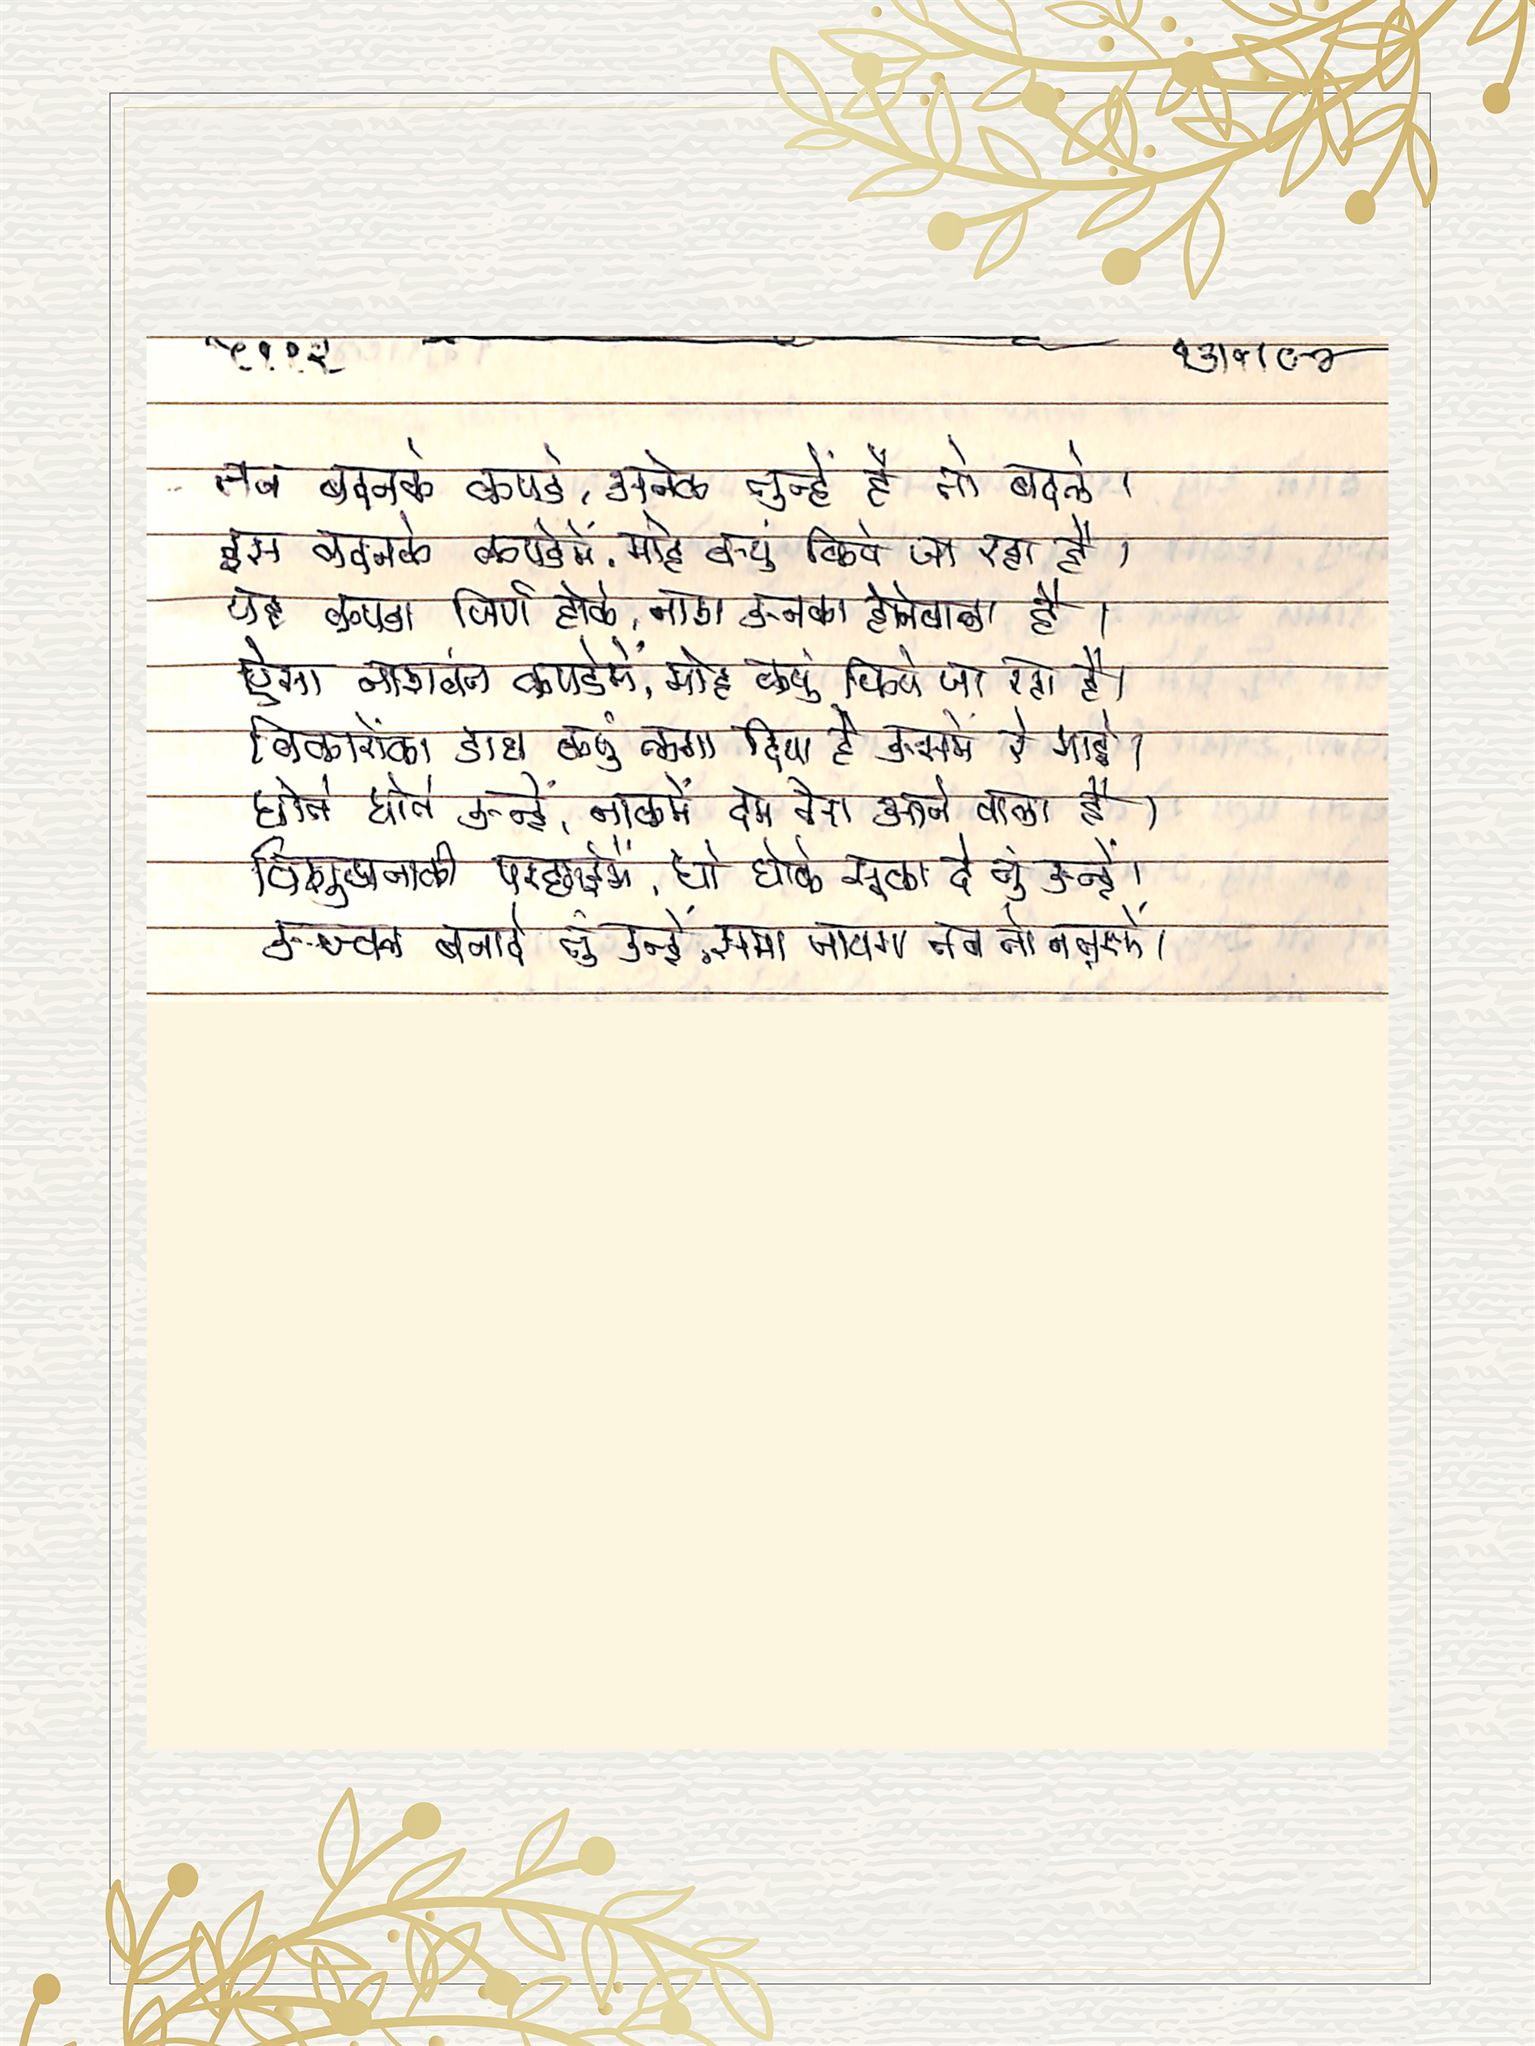 तन बदनके कपडे, अनेक तुन्हें है तो बदले।
इस बदनके कपडेमें, मोह क्युं किये जा रहा है।
यह कपडा जिर्ण होके, नाश उनका होनेवाला है।
ऐसा नाशवंत कपडेमें, मोह क्युं किये जा रहा है।
विकारोंका डाघ क्युं लगा दिया है उसमें रे भाई।
धोते धोते उन्हें, नाकमें दम तेरा आने वाला है।
विशुद्धताकी परछाईमें, धो धोके सूका दे तुं उन्हें।
उज्वल बनादे तुं उन्हें, समा जायगा तब तो